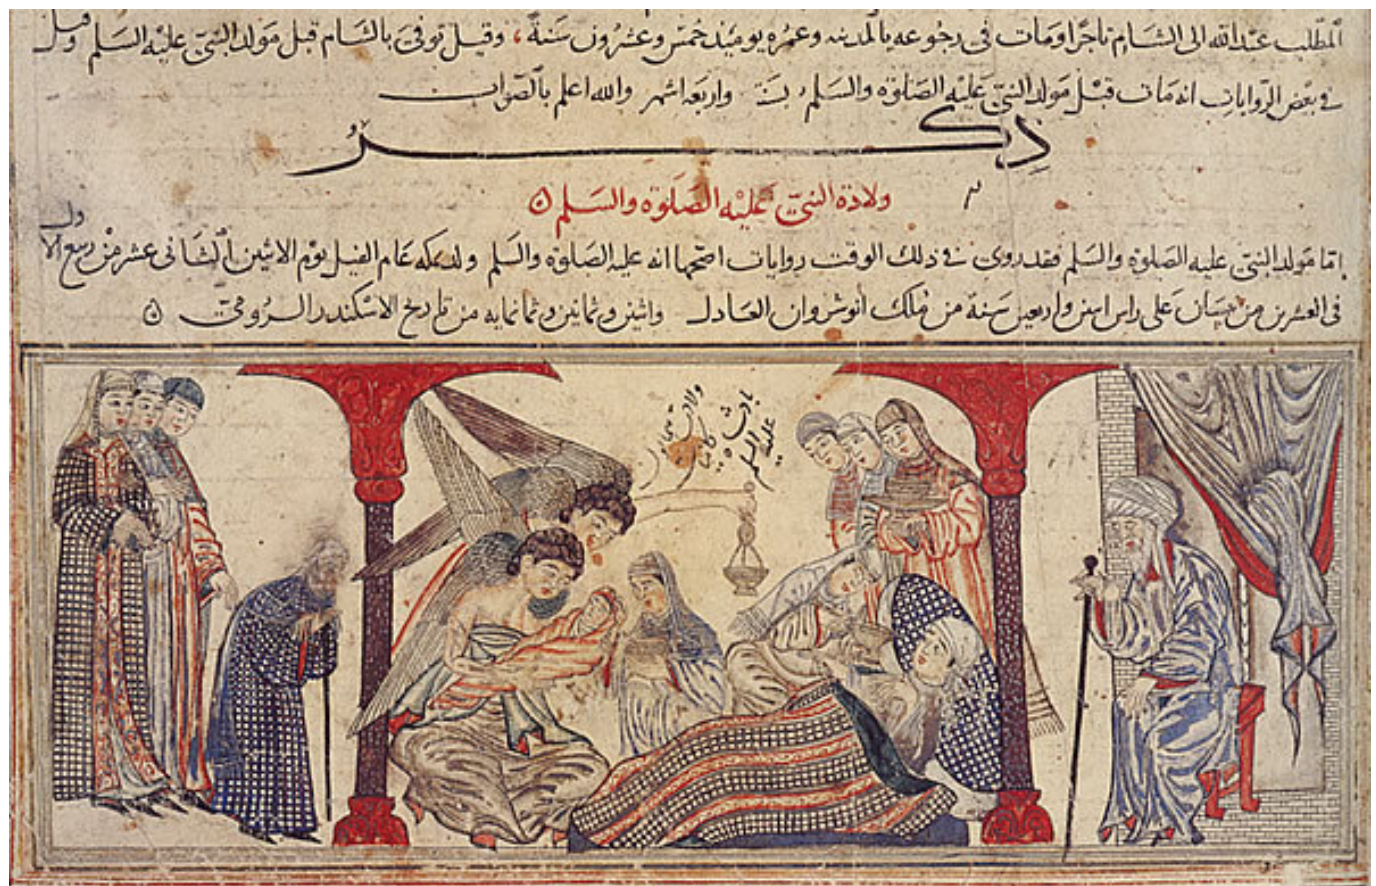 المطلب عبدالله الى الشام تاجرا ومات فى رجوعه بالمدينه وعمره يوميذ خمس وعشرون سنة، وقيل توفى بالشام قبل مولد النبى عليه السلم وقيل
فى بعض الروايات انه مات قبل مولد النبى عليه الصلوة والسلم واربعه اشهر والله اعلم بالصواب
ذكر
ولادة النبى عليه الصلوة والسلم
امّا مولد النبى عليه الصلوة والسلم فقد روى فى ذلك الوقت روايات اصحّها انه عليه الصلوة والسلم ولد بمكه عام الفيل يوم الاثنين الثانى عشر من ربيع الاول
فى العشرين من نيسان على راس اثنين واربعين سنة من ملك انوشروان العادل واثنين وثمانين وثمانمايه من تاريخ الاسكندر الرومىّ
عليه السلم